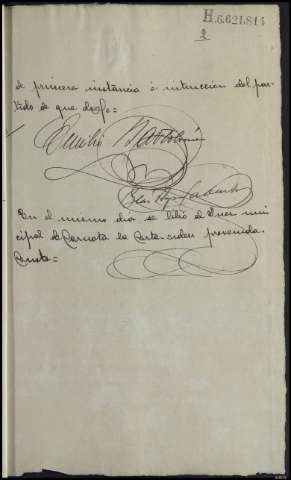 H.6.621.814
2
de primera instancia é instrucción del par-
tido de que doy fe =
Emilio Bartolomé
En el mismo dia se libró al Juez mu
cipal de Carnota la Carta-orden prevenida.